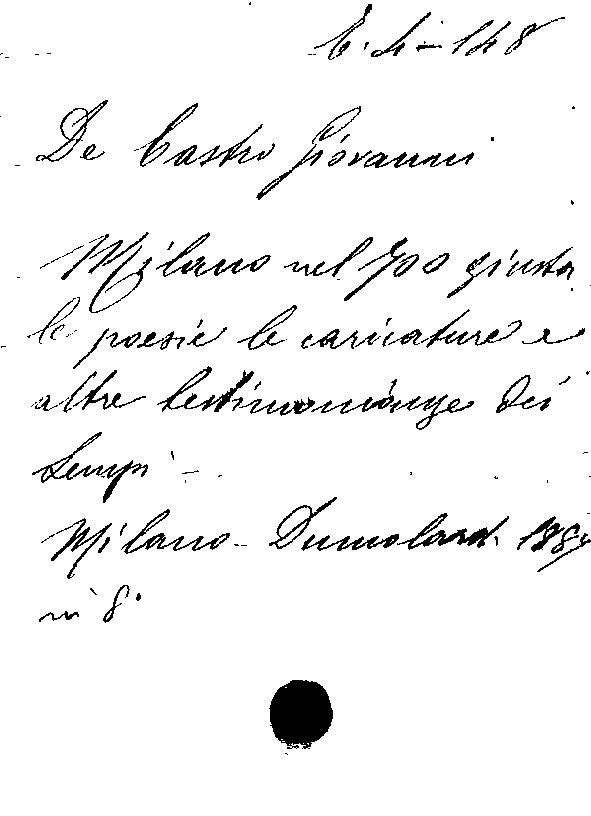 E. 4 - 148
De Castro Giovanni
Milano nel 700 giusta
le poesie le caricature e
altre testimonianze dei
tempi -.
Milano - Dumolard. 1887
in 8°